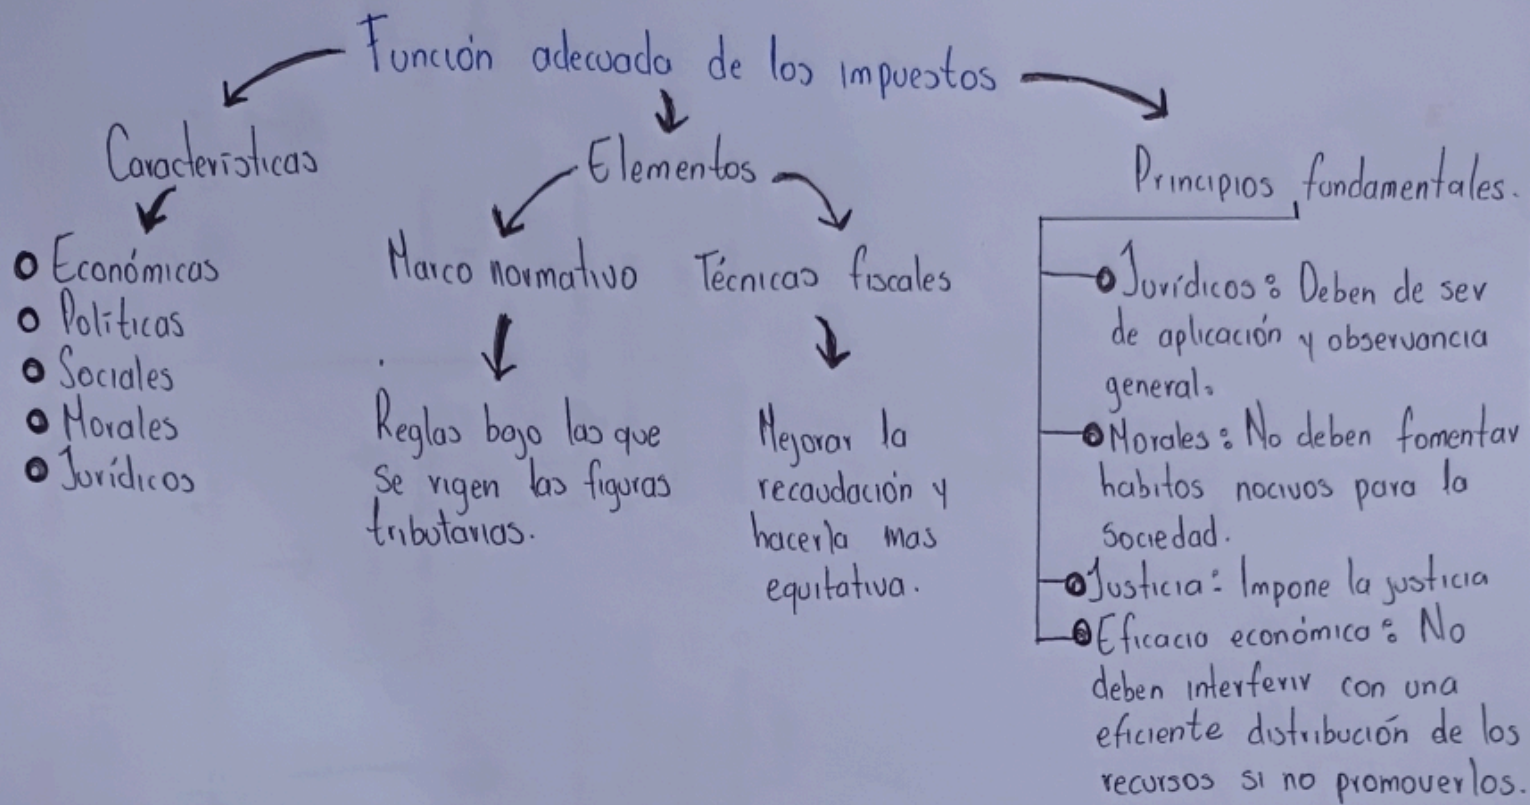 Función adecuada de los impuestos
Características
• Económicas
• Políticas
• Sociales
• Morales
• Jurídicos
Elementos
Marco normativo
Reglas bajo las que
se rigen las figuras
tributarias.
Técnicas fiscales
Mejorar la
recaudación y
hacerla mas
equitativa.
Principios fundamentales.
• Jurídicos: Deben de ser
de aplicación y observancia
general.
• Morales: No deben fomentar
habitos nocivos para la
sociedad.
• Justicia: Impone la justicia
• Eficacia económica: No
deben interferir con una
eficiente distribución de los
recursos si no promoverlos.